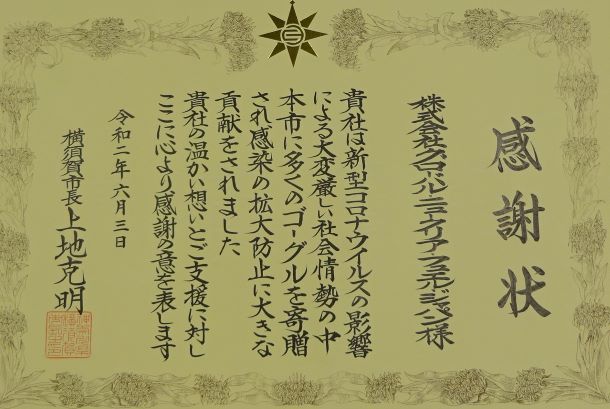 感謝状
株式会社グローバル・ニュークリア・フュエル・ジャパン様
貴社は新型コロナウイルスの影響
による大変厳しい社会情勢の中
本市に多くのゴーグルを寄贈
され感染の拡大防止に大きな
貢献をされました
貴社の温かい想いとご支援に対し
ここに心より感謝の意を表します
令和二年六月三日
横須賀市長 上地克明